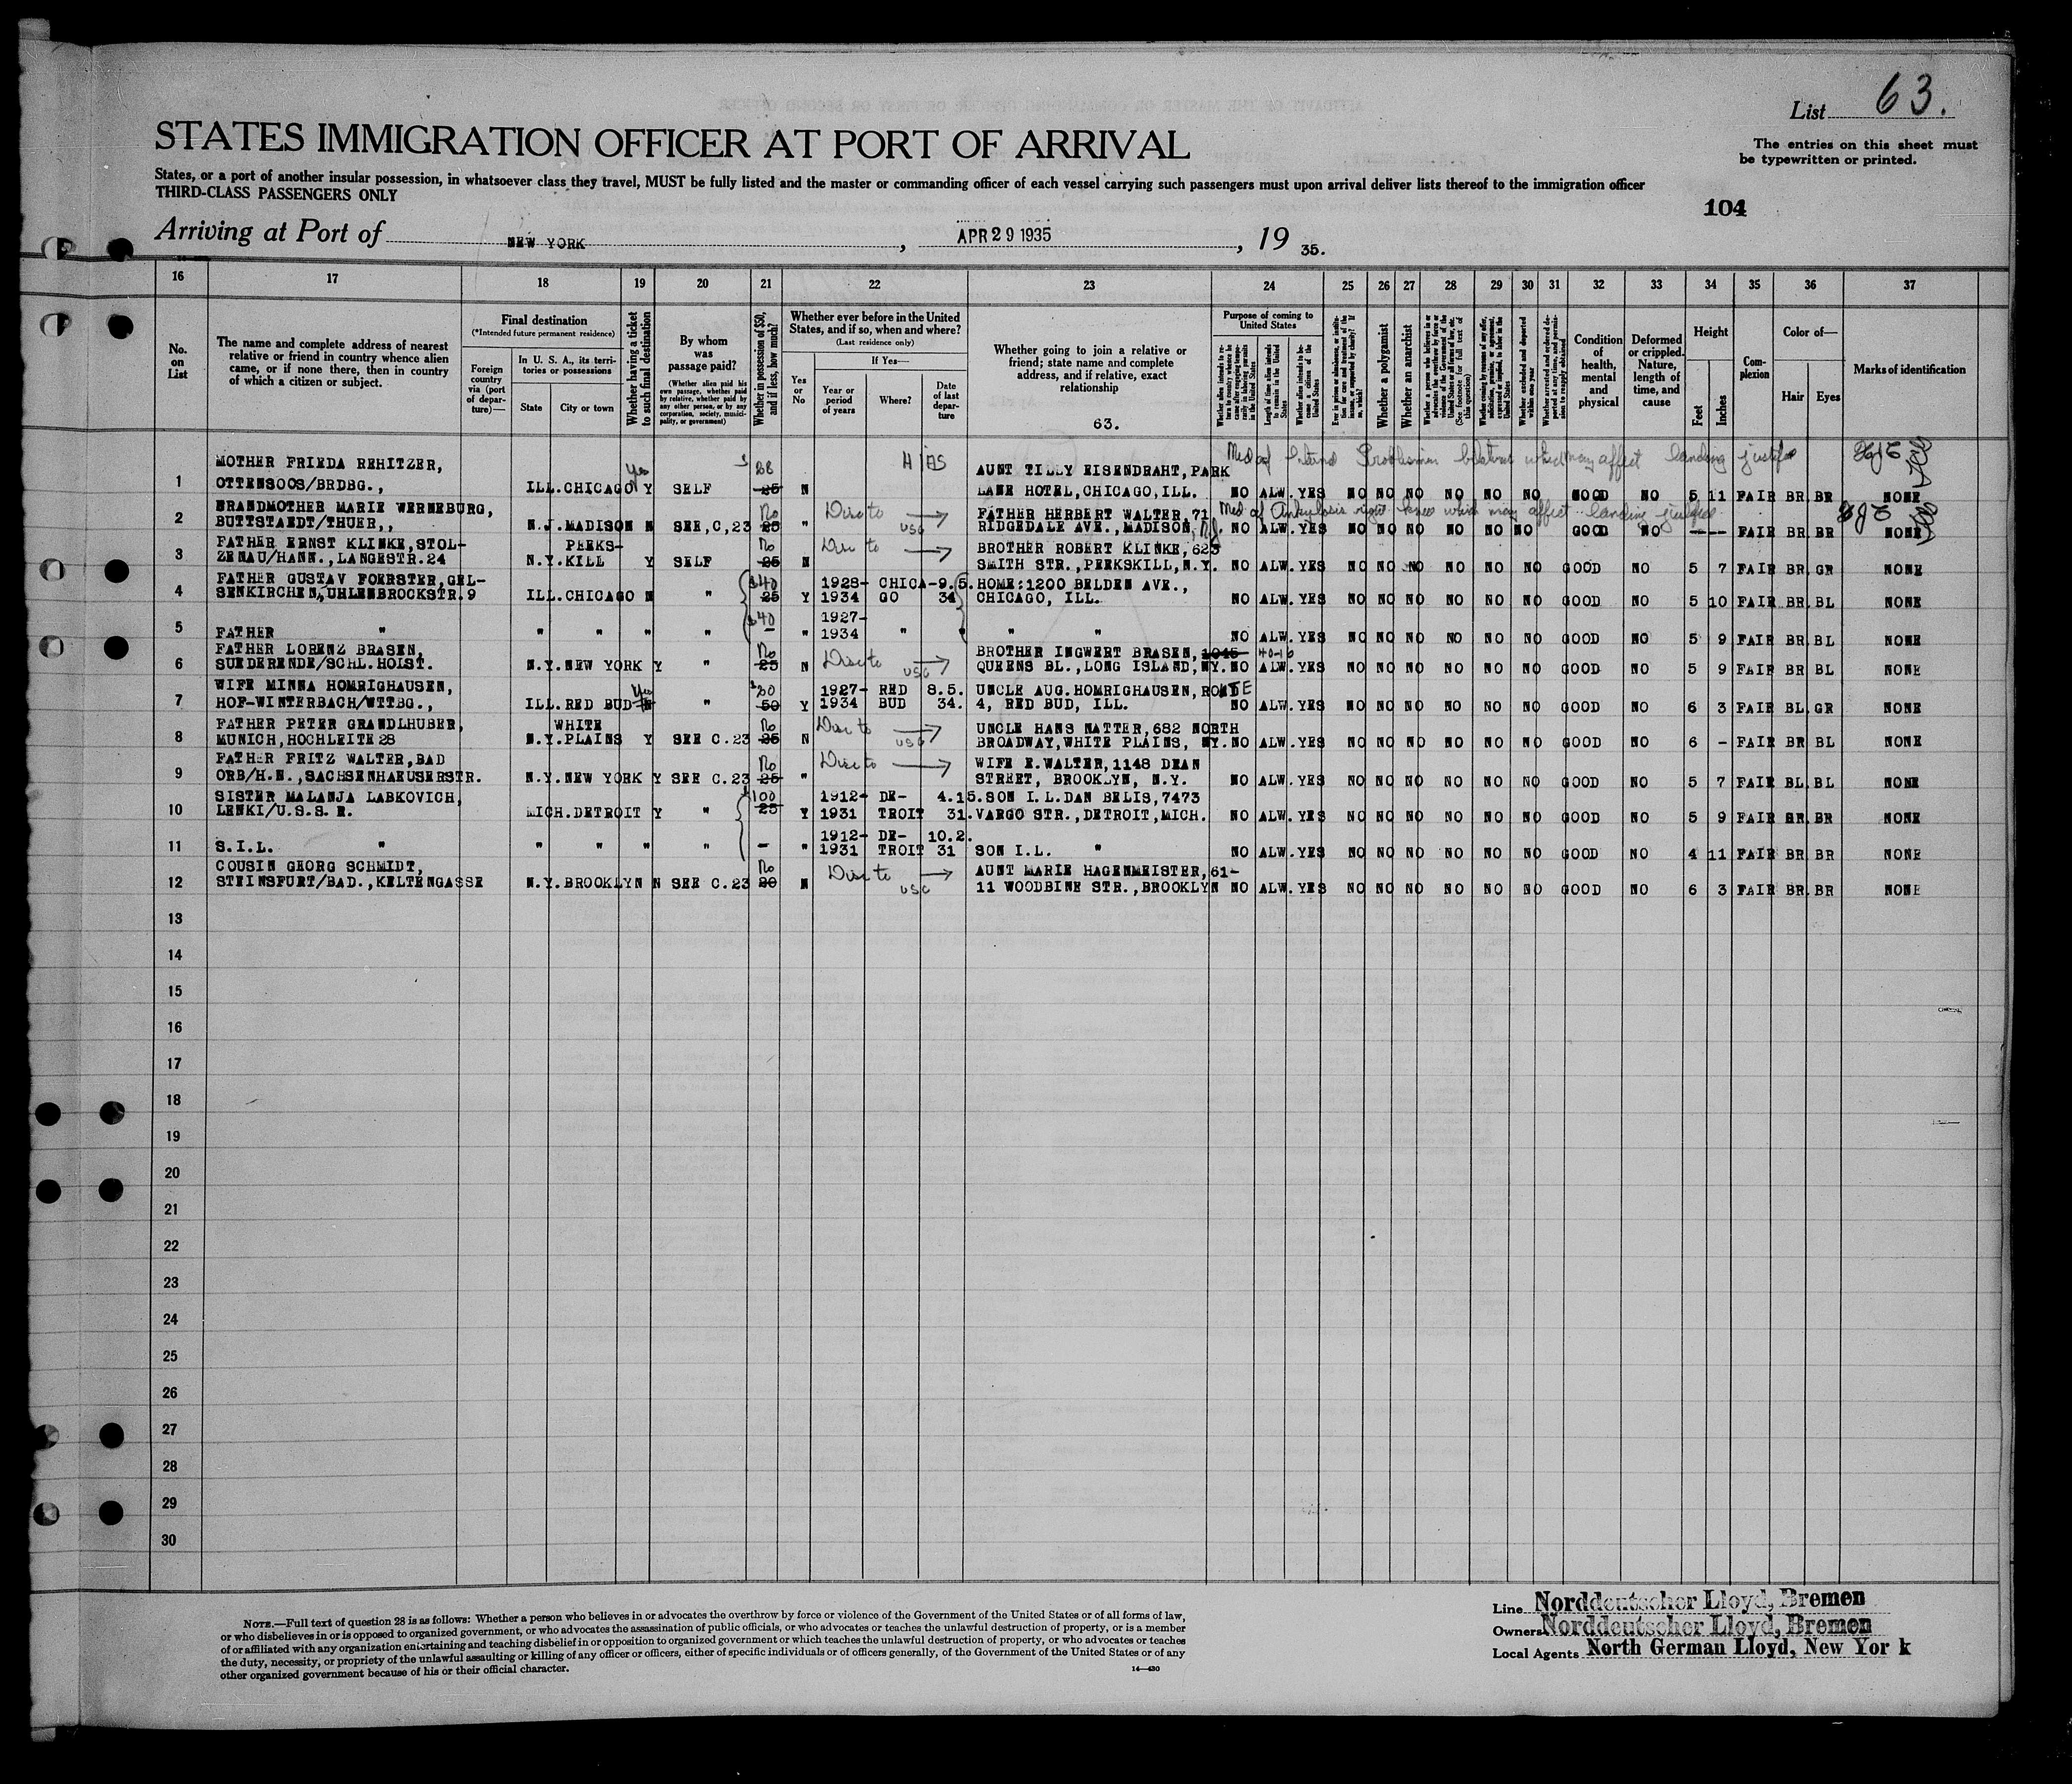 List 63.
STATES IMMIGRATION OFFICER AT PORT OF ARRIVAL
The entries on this sheet must
be typewritten or printed.
States, or a port of another insular possession, in whatsoever class they travel, MUST be fully listed and the master or commanding officer of each vessel carrying such passengers must upon arrival deliver lists thereof to the immigration officer
THIRD-CLASS PASSENGERS ONLY
104
Arriving at Port of NEW YORK, APR 29 1935, 19 35.
16 17 18 19 20 21 22 23 24 25 26 27 28 29 30 31 32 33 34 35 36 37
No. on List
The name and complete address of nearest
relative or friend in country whence alien
came, or if none there, then in country
of which a citizen or subject.
Final destination
(*Intended future permanent residence)
Foreign country via (port of depar-ture)—
In U. S. A., its terri-tories or possessions
State
City or town
Whether having a ticket to such final destination
By whom was passage paid?
(Whether alien paid his own passage, whether paid by relative, whether paid by any other person, or by any corporation, society, munici-pality, or government)
Whether in possession of $50, and if less, how much?
Whether ever before in the United States, and if so, when and where?
(Last residence only)
Yes or No
If Yes—
Year or period of years
Where?
Date of last depar-ture
Whether going to join a relative or
friend; state name and complete
address, and if relative, exact
relationship
63.
Purpose of coming to United States
Length of time alien intends to remain in the United States
Whether alien intends to be-come a citizen of the United States
Whether a polygamist
Whether an anarchist
Condition of health, mental and physical
Deformed or crippled. Nature, length of time, and cause
Height
Feet
Inches
Com-plexion
Color of—
Hair
Eyes
Marks of identification
1 MOTHER FRIEDA REHITZER, AUNT TILLY EISENDRAHT, PARK
OTTENSOOS/BRDBG., ILL. CHICAGO Yes Y SELF 25 N LANE HOTEL, CHICAGO, ILL. NO ALW. YES NO NO NO NO NO NO GOOD NO 5 11 FAIR BR BR NONE
which may affect landing
2 GRANDMOTHER MARIE WERNEBURG, No FATHER HERBERT WALTER, 71
BUTTSTAEDT/THUER,, N.J. MADISON N SEE,C,23 25 " USC RIDGEDALE AVE., MADISON, N.J. NO ALW. YES NO NO NO NO NO NO GOOD NO ---- FAIR BR BR NONE
Med of Ankylosis right knee which may affect landing
3 FATHER ERNST KLINKE, STOL- PEEKS- No BROTHER ROBERT KLINKE, 623
ZENAU/HANN., LANGESTR. 24 N.Y. KILL Y SELF 25 N SMITH STR., PEEKSKILL, N.Y. NO ALW. YES NO NO NO NO NO NO GOOD NO 5 7 FAIR BR GR NONE
4 FATHER GUSTAV FOERSTER, GEL- $40 1928- CHICA- 9.5. HOME: 1200 BELDEN AVE.,
SENKIRCHEN, UHLENBROCKSTR. 9 ILL. CHICAGO N " 25 Y 1934 GO 34 CHICAGO, ILL. NO ALW. YES NO NO NO NO NO NO GOOD NO 5 10 FAIR BR BL NONE
5 $40 1927-
FATHER " " " " " - " 1934 " " " " NO ALW. YES NO NO NO NO NO NO GOOD NO 5 9 FAIR BR BL NONE
6 FATHER LORENZ BRASEN, No BROTHER INGWERT BRASEN, 1045 40-16
SUEDERENDE/SCHL. HOLST. N.Y. NEW YORK Y " 25 N USC QUEENS BL., LONG ISLAND, NY. NO ALW. YES NO NO NO NO NO NO GOOD NO 5 9 FAIR BR BL NONE
7 WIFE MINNA HOMRIGHAUSEN, Yes 1927- RED 8.5. UNCLE AUG. HOMRIGHAUSEN, ROUTE
HOF-WINTERBACH/WTTBG., ILL. RED BUD " 50 Y 1934 BUD 34. 4, RED BUD, ILL. NO ALW. YES NO NO NO NO NO NO GOOD NO 6 3 FAIR BL GR NONE
8 FATHER PETER GRANDLHUBER, WHITE No UNCLE HANS NATTER, 682 NORTH
MUNICH, HOCHLEITE 28 N.Y. PLAINS Y SEE C.23 25 N USC BROADWAY, WHITE PLAINS, NY. NO ALW. YES NO NO NO NO NO NO GOOD NO 6 - FAIR BR BL NONE
9 FATHER FRITZ WALTER, BAD No WIFE E. WALTER, 1148 DEAN
ORB/H.N., SACHSENHAEUSERSTR. N.Y. NEW YORK Y SEE C.23 25 " STREET, BROOKLYN, N.Y. NO ALW. YES NO NO NO NO NO NO GOOD NO 5 7 FAIR BL BL NONE
10 SISTER MALANJA LABKOVICH, $100 1912- DE- 4.15. SON I.L. DAN BELIS, 7473
LENKI/U.S.S.R. MICH. DETROIT Y " 25 Y 1931 TROIT 31. VARGO STR., DETROIT, MICH. NO ALW. YES NO NO NO NO NO NO GOOD NO 5 9 FAIR GR BR NONE
11 1912- DE- 10.2.
S.I.L. " " " " " - " 1931 TROIT 31 SON I.L. " NO ALW. YES NO NO NO NO NO NO GOOD NO 4 11 FAIR BR BR NONE
12 COUSIN GEORG SCHMIDT, No AUNT MARIE HAGENMEISTER, 61-
STEINSFURT/BAD., KELTENGASSE N.Y. BROOKLYN N SEE C.23 20 N USC 11 WOODBINE STR., BROOKLYN NO ALW. YES NO NO NO NO NO NO GOOD NO 6 3 FAIR BR BR NONE
13
14
15
16
17
18
19
20
21
22
23
24
25
26
27
28
29
30
NOTE.—Full text of question 28 is as follows: Whether a person who believes in or advocates the overthrow by force or violence of the Government of the United States or of all forms of law,
or who disbelieves in or is opposed to organized government, or who advocates the assassination of public officials, or who advocates or teaches the unlawful destruction of property, or is a member
of or affiliated with any organization entertaining and teaching disbelief in or opposition to organized government or which teaches the unlawful destruction of property, or who advocates or teaches
the duty, necessity, or propriety of the unlawful assaulting or killing of any officer or officers, either of specific individuals or of officers generally, of the Government of the United States or of any
other organized government because of his or their official character.
14—430
Line Norddeutscher Lloyd, Bremen
Owners Norddeutscher Lloyd, Bremen
Local Agents North German Lloyd, New York